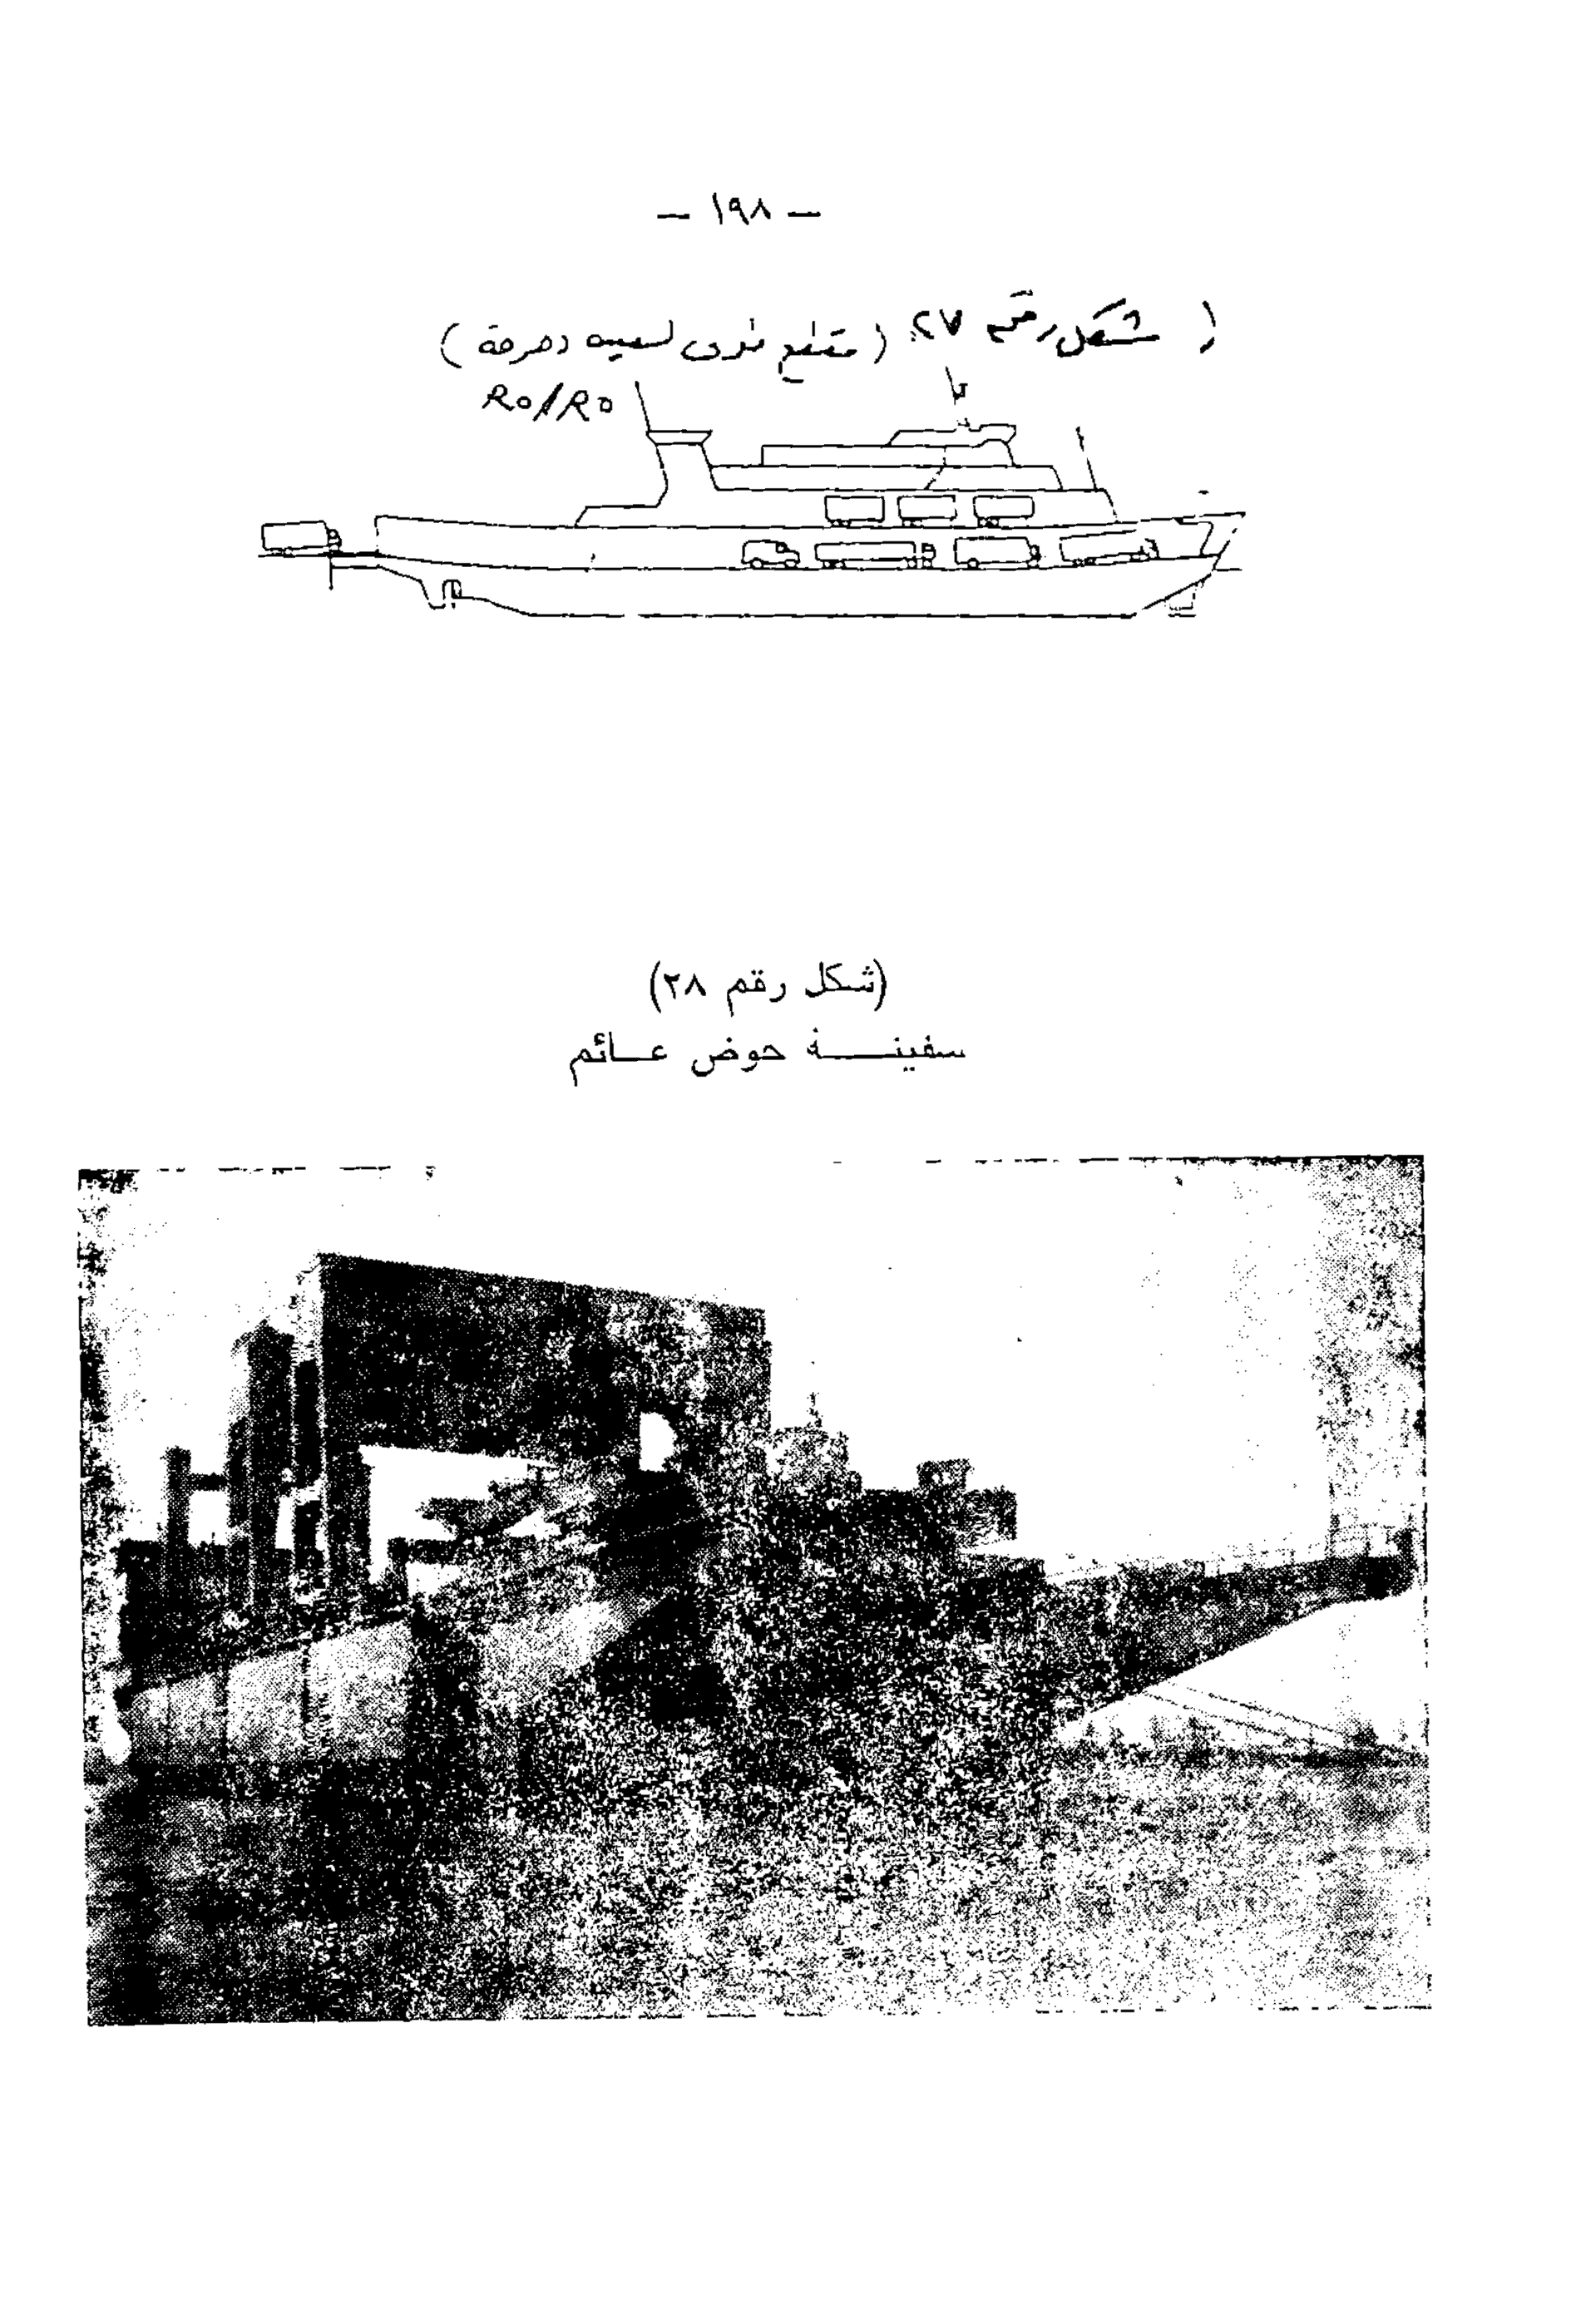 — ١٩٨ —
( شكل رقم ٢٧ ( مقطع طولى لسفينه دحرجة )
RO/RO
(شكل رقم ٢٨)
سفينـــة حوض عـائم